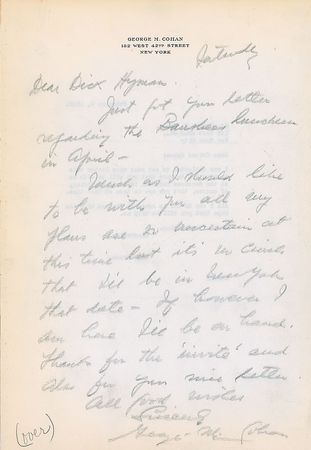 GEORGE M. COHAN
152 WEST 42ND STREET
NEW YORK
Saturday
Dear Dick Hyman.
Just got your letter
regarding the Banshees luncheon
in April -
Much as I should like
to be with you all my
plans are so uncertain at
this time but it's
that I'll be in New York
that date - If however I
am here I'll be on hand.
Thanks for the 'invite' and
also for your nice letter.
All good wishes
Sincerely
George M. Cohan
(over)